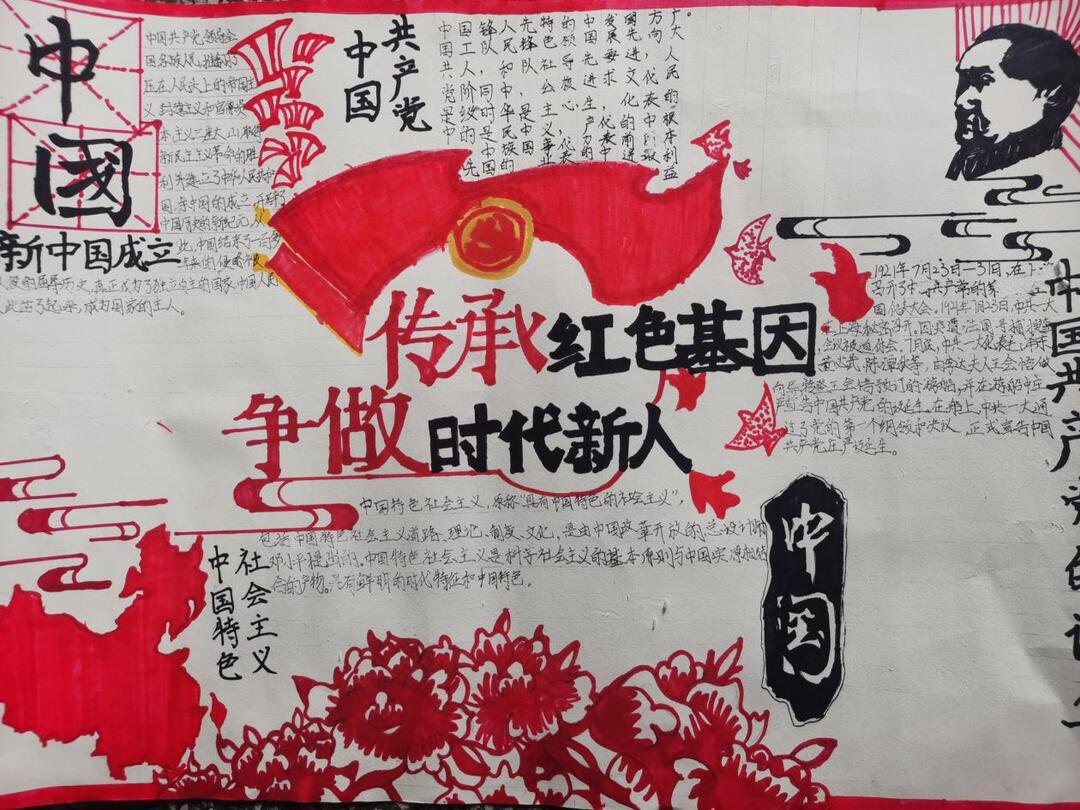 中
國
中国共产党领导全
国各族人民,推翻了
压在人民头上的帝国主
义封建主义和官僚资
本主义三座大山,取得
新民主主义革命的胜
利并建立了中华人民共和
国,新中国的成立,开辟了
中国历史的新纪元,从
此,中国结束了一百多
年来的侵略
新中国成立
历史,真正成为了独立自主的国家,中国人民
从此站了起来,成为国家的主人。
中国
共产党
中国共产党是中
国工人阶级的先
锋队,同时是中国
人民和中华民族的
先锋队,是中国
特色社会主义事业
的领导核心,代表
中国先进生产力的
发展要求,代表中
国先进文化的前进
方向,代表中国最
广大人民的根本利益
。
传承红色基因
争做时代新人
1921年7月23日—31日,在上
召开了中国共产党的第一
国代表大会。1921年7月23日,中共一大
在上海秘密召开,因突遭法国
会议被迫休会。7月底,中共一大代表毛泽东
董必武,陈潭秋等,由李达夫人王会悟做
向导
正式宣告中国
共产党庄严诞生。
中国共产党的诞生
中国特色社会主义,原称“具有中国特色的社会主义”,
包括中国特色社会主义道路、理论、制度、文化,是由中国改革开放的总设计师
邓小平提出的。中国特色社会主义是科学社会主义的基本原则与中国实际相结
合的产物。具有鲜明的时代特征和中国特色。
中国特色
社会主义
中国